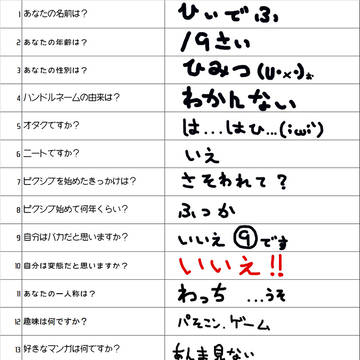 1 あなたの名前は? ひぃでふ
2 あなたの年齢は? 19さい
3 あなたの性別は? ひみつ(U・×・)ぉ
4 ハンドルネームの由来は? わかんない
5 オタクですか? は...はひ...(;ω;`)
6 ニートですか? いえ
7 ピクシブを始めたきっかけは? さそわれて?
8 ピクシブ始めて何年くらい? ふつか
9 自分はバカだと思いますか? いいえ⑨です
10 自分は変態だと思いますか? いいえ!!
11 あなたの一人称は? わっち ...うそ
12 趣味は何ですか? パそこン.ゲーム
13 好きなマンガは何ですか? あんま見ない